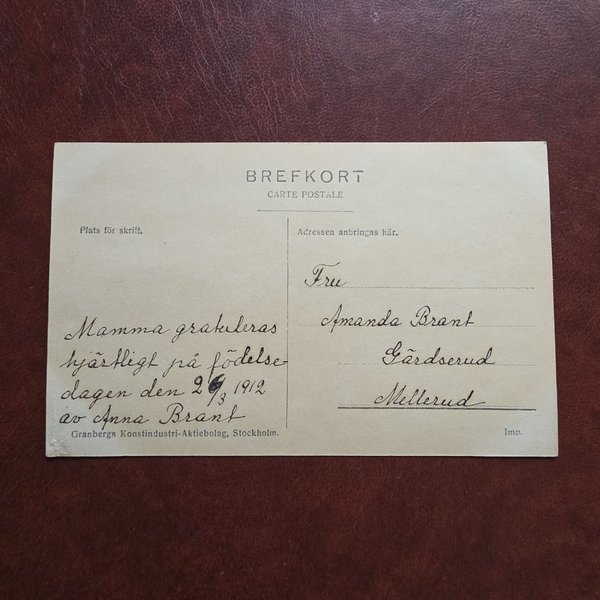 BREFKORT
CARTE POSTALE
Plats för skrift.
Adressen anbringas här.
Mamma gratuleras
hjärtligt på födelse-
dagen den 26/3 1912
av Anna Brant
Fru
Amanda Brant
Gärdserud
Mellerud
Granbergs Konstindustri-Aktiebolag, Stockholm.
Imp.